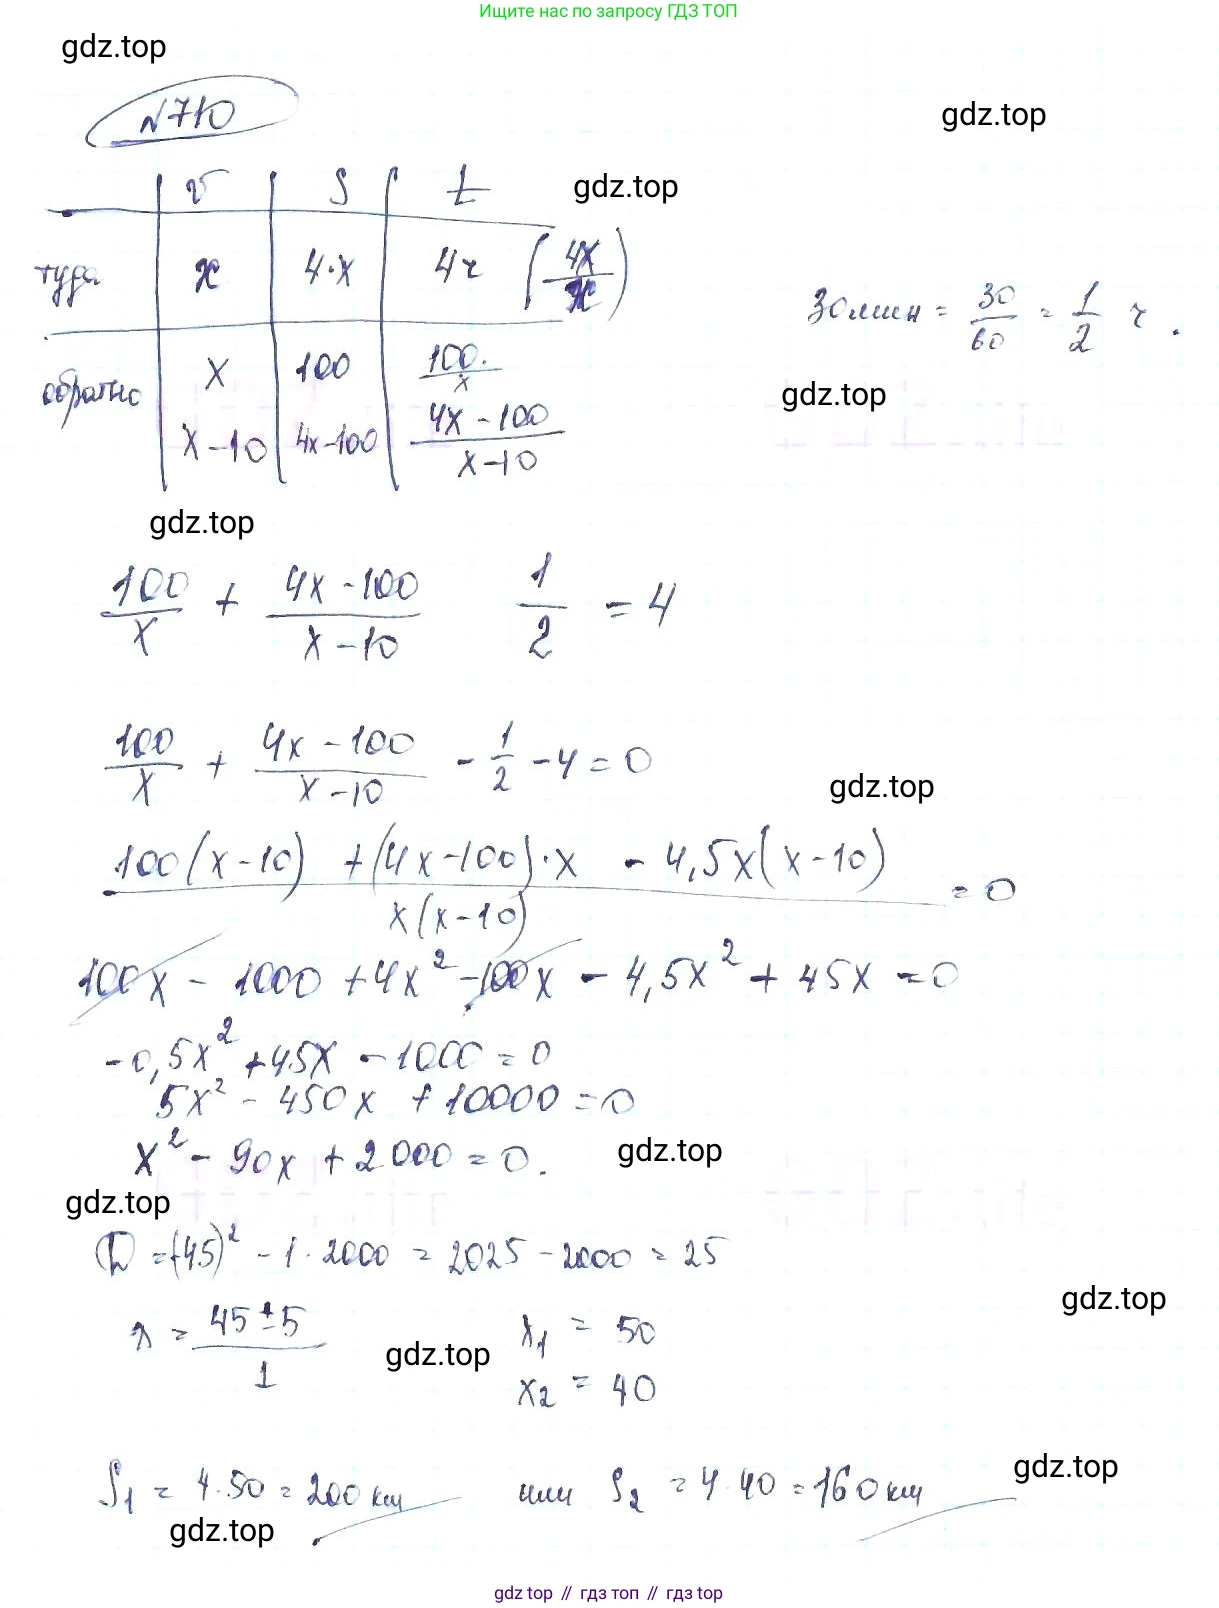 Ищите нас по запросу ГДЗ ТОП
gdz.top
№710
gdz.top
v S t
gdz.top
туда x 4·x 4ч (4x/x)
30мин = 30/60 = 1/2 ч.
обратно x 100 100/x
gdz.top
x-10 4x-100 (4x-100)/(x-10)
gdz.top
100/x + (4x-100)/(x-10) 1/2 = 4
100/x + (4x-100)/(x-10) - 1/2 - 4 = 0
gdz.top
(100(x-10) + (4x-100)·x - 4,5x(x-10))/(x(x-10)) = 0
100x - 1000 + 4x² - 100x - 4,5x² + 45x = 0
-0,5x² + 45x - 1000 = 0
5x² - 450x + 10000 = 0
x² - 90x + 2000 = 0.
gdz.top
gdz.top
D = (-45)² - 1·2000 = 2025 - 2000 = 25
gdz.top
x = (45±5)/1 x₁ = 50
gdz.top
x₂ = 40
gdz.top
S₁ = 4·50 = 200 км или S₂ = 4·40 = 160 км
gdz.top
gdz top // гдз топ // гдз top